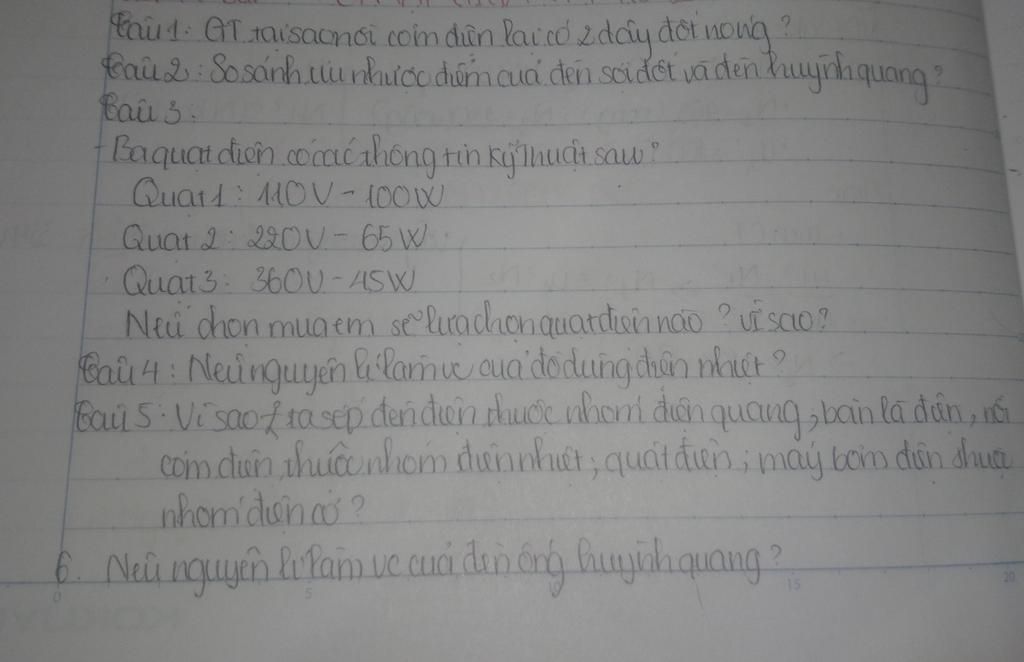 Câu 1: GT tại sao nồi cơm điện lại có 2 dây đốt nóng?
Câu 2: So sánh ưu nhược điểm của đèn sợi đốt và đèn huỳnh quang?
Câu 3:
- Ba quạt điện có các thông tin kỹ thuật sau?
Quạt 1: 110V - 100W
Quạt 2: 220V - 65W
Quạt 3: 360V - 45W
Nếu chọn mua em sẽ lựa chọn quạt điện nào? vì sao?
Câu 4: Nêu nguyên lí làm vc của đồ dùng điện nhiệt?
Câu 5: Vì sao ta sếp đèn điện thuộc nhóm điện quang, bàn là điện, nồi
cơm điện, thuộc nhóm điện nhiệt; quạt điện; máy bơm điện thuộc
nhóm điện cơ?
6. Nêu nguyên lí làm vc của đèn ống huỳnh quang?
0 5 10 15 20